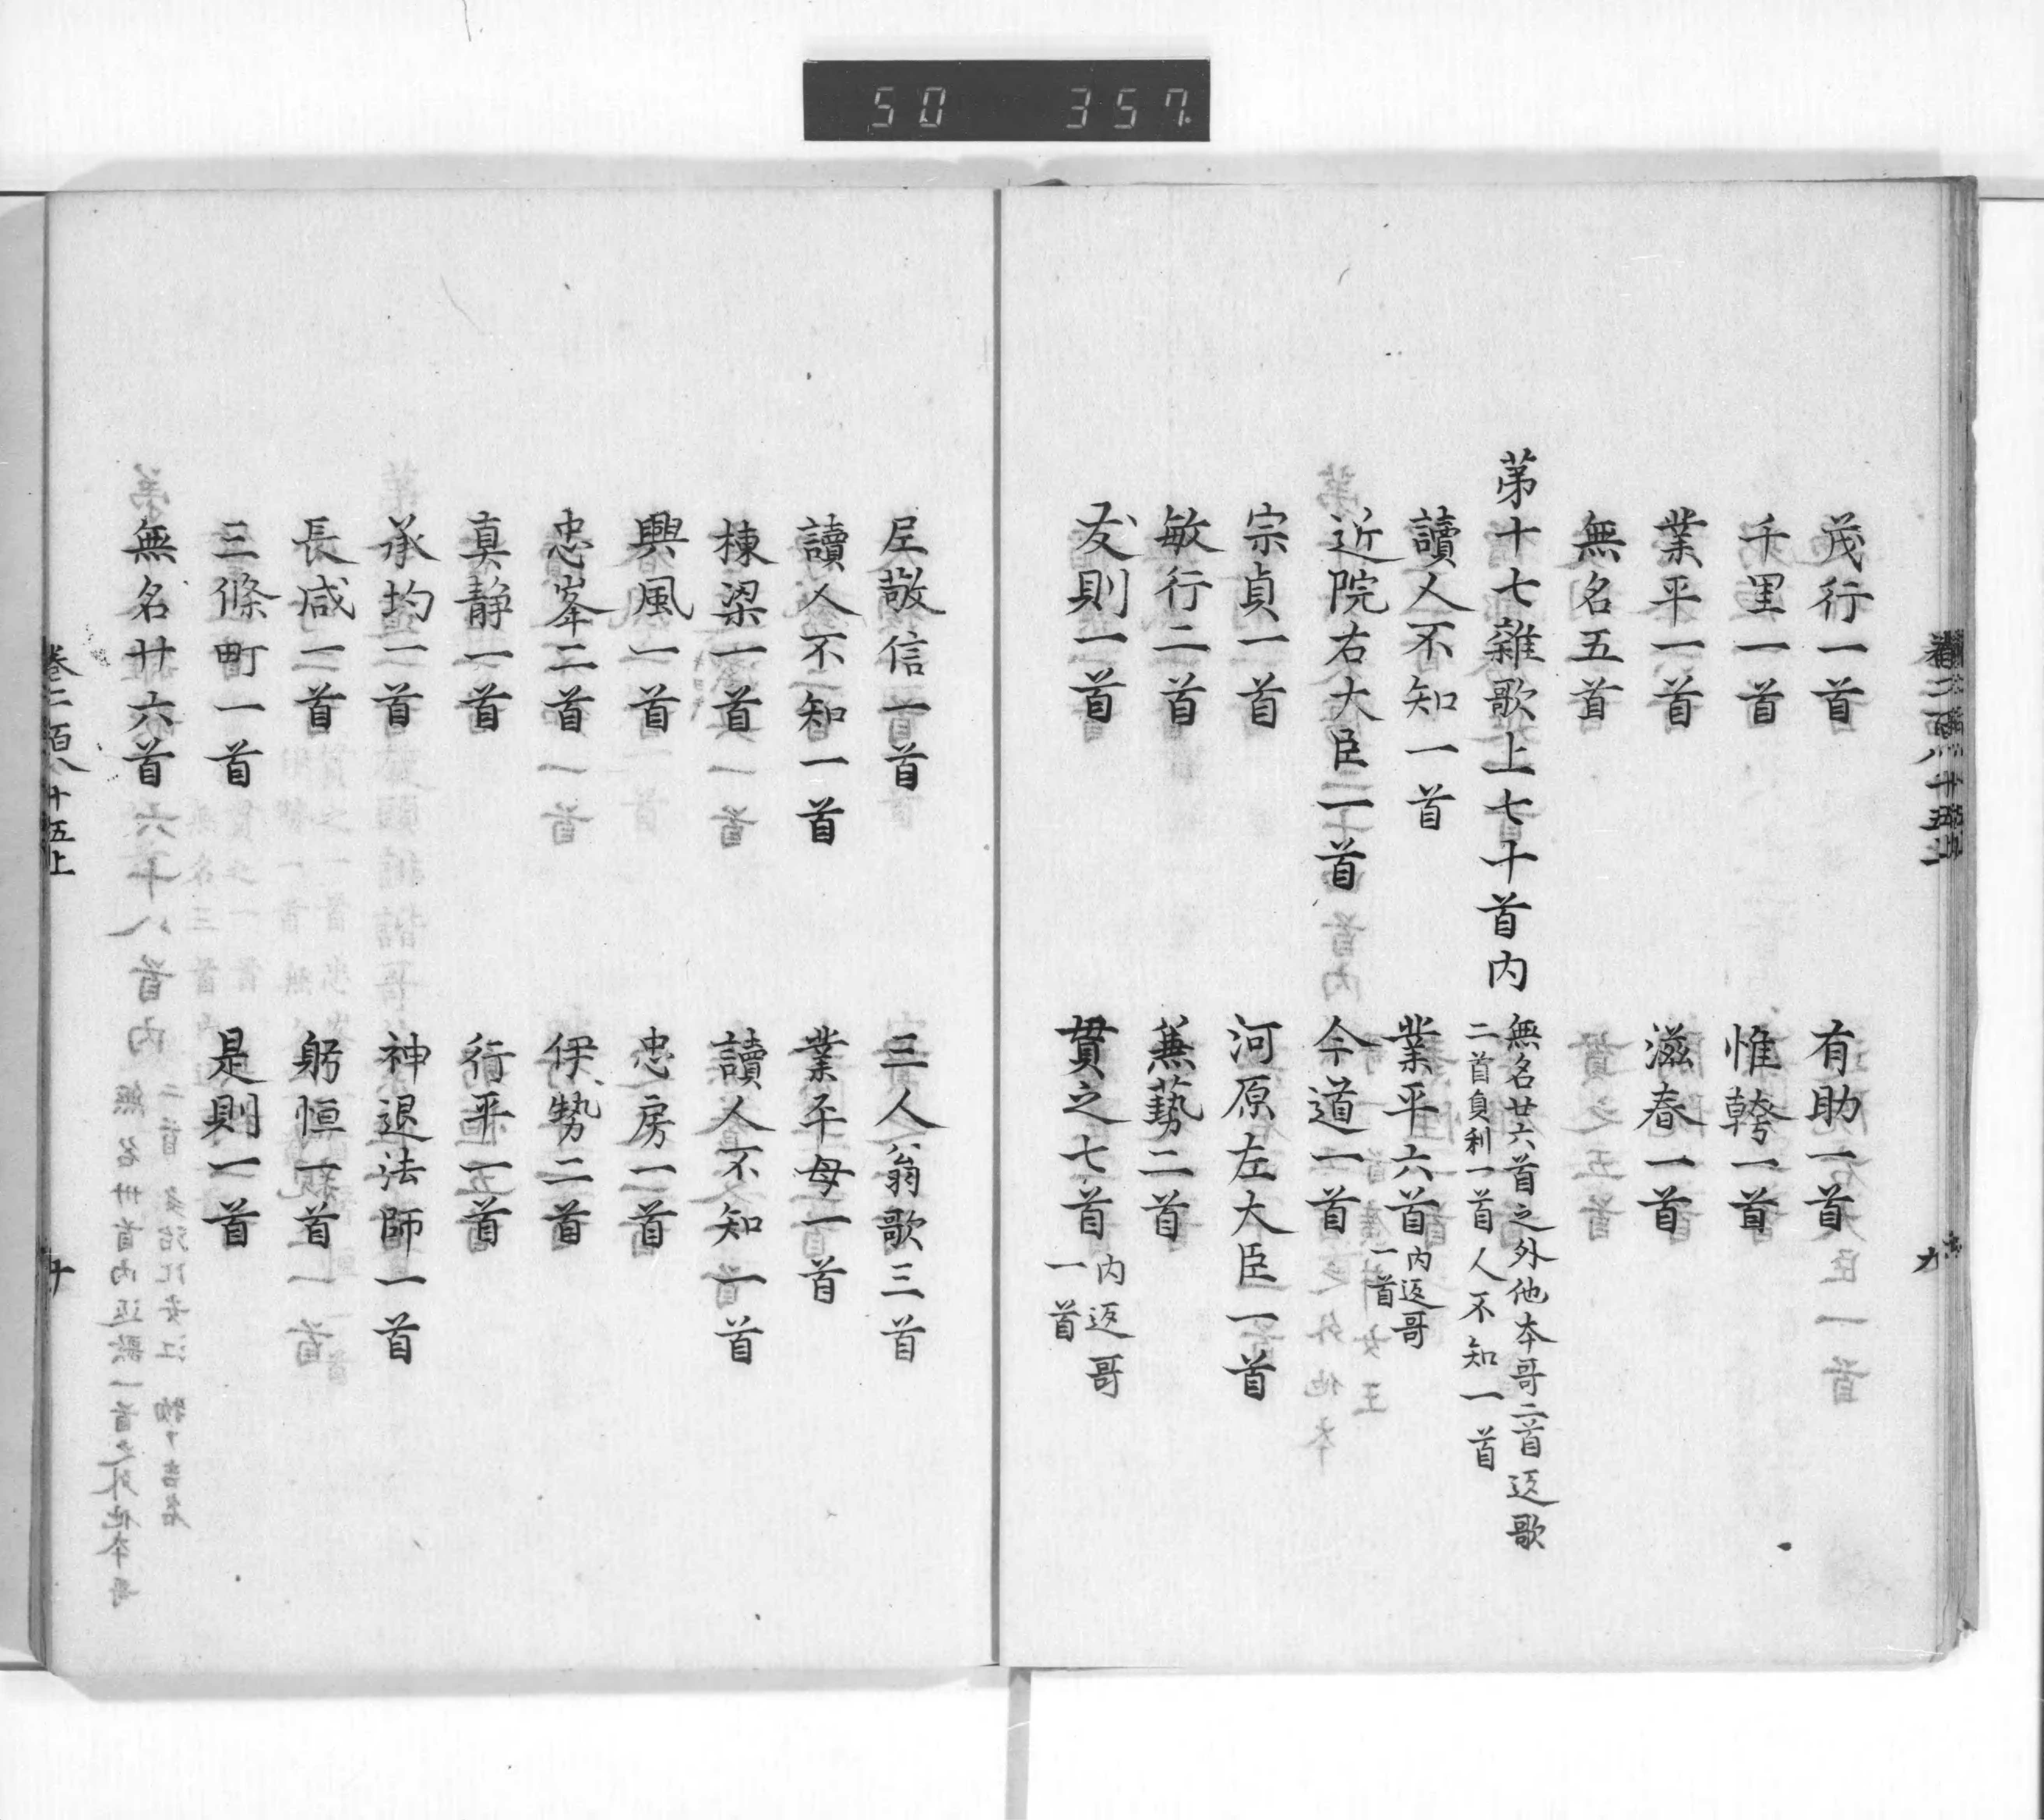 50 357
茂行一首 有助一首
千里一首 惟幹一首
業平一首 滋春一首
無名五首
苐十七雜歌上七十首内 無名廿六首之外他本哥二首返歌
二首負利一首人不知一首
讀人不知一首 業平六首 内返哥
一首
近院右大臣一首 今道一首
宗貞一首 河原左大臣一首
敏行二首 兼藝二首
友則一首 貫之七首 内返哥
一首
尼敬信一首 三人翁歌三首
讀人不知一首 業平母一首
棟梁一首 讀人不知一首
興風一首 忠房一首
忠峯二首 伊勢二首
真静一首 行平一首
承均一首 神退法師一首
長咸一首 躬恒一首
三條町一首 是則一首
無名廿六首
卷二百八十五上 十